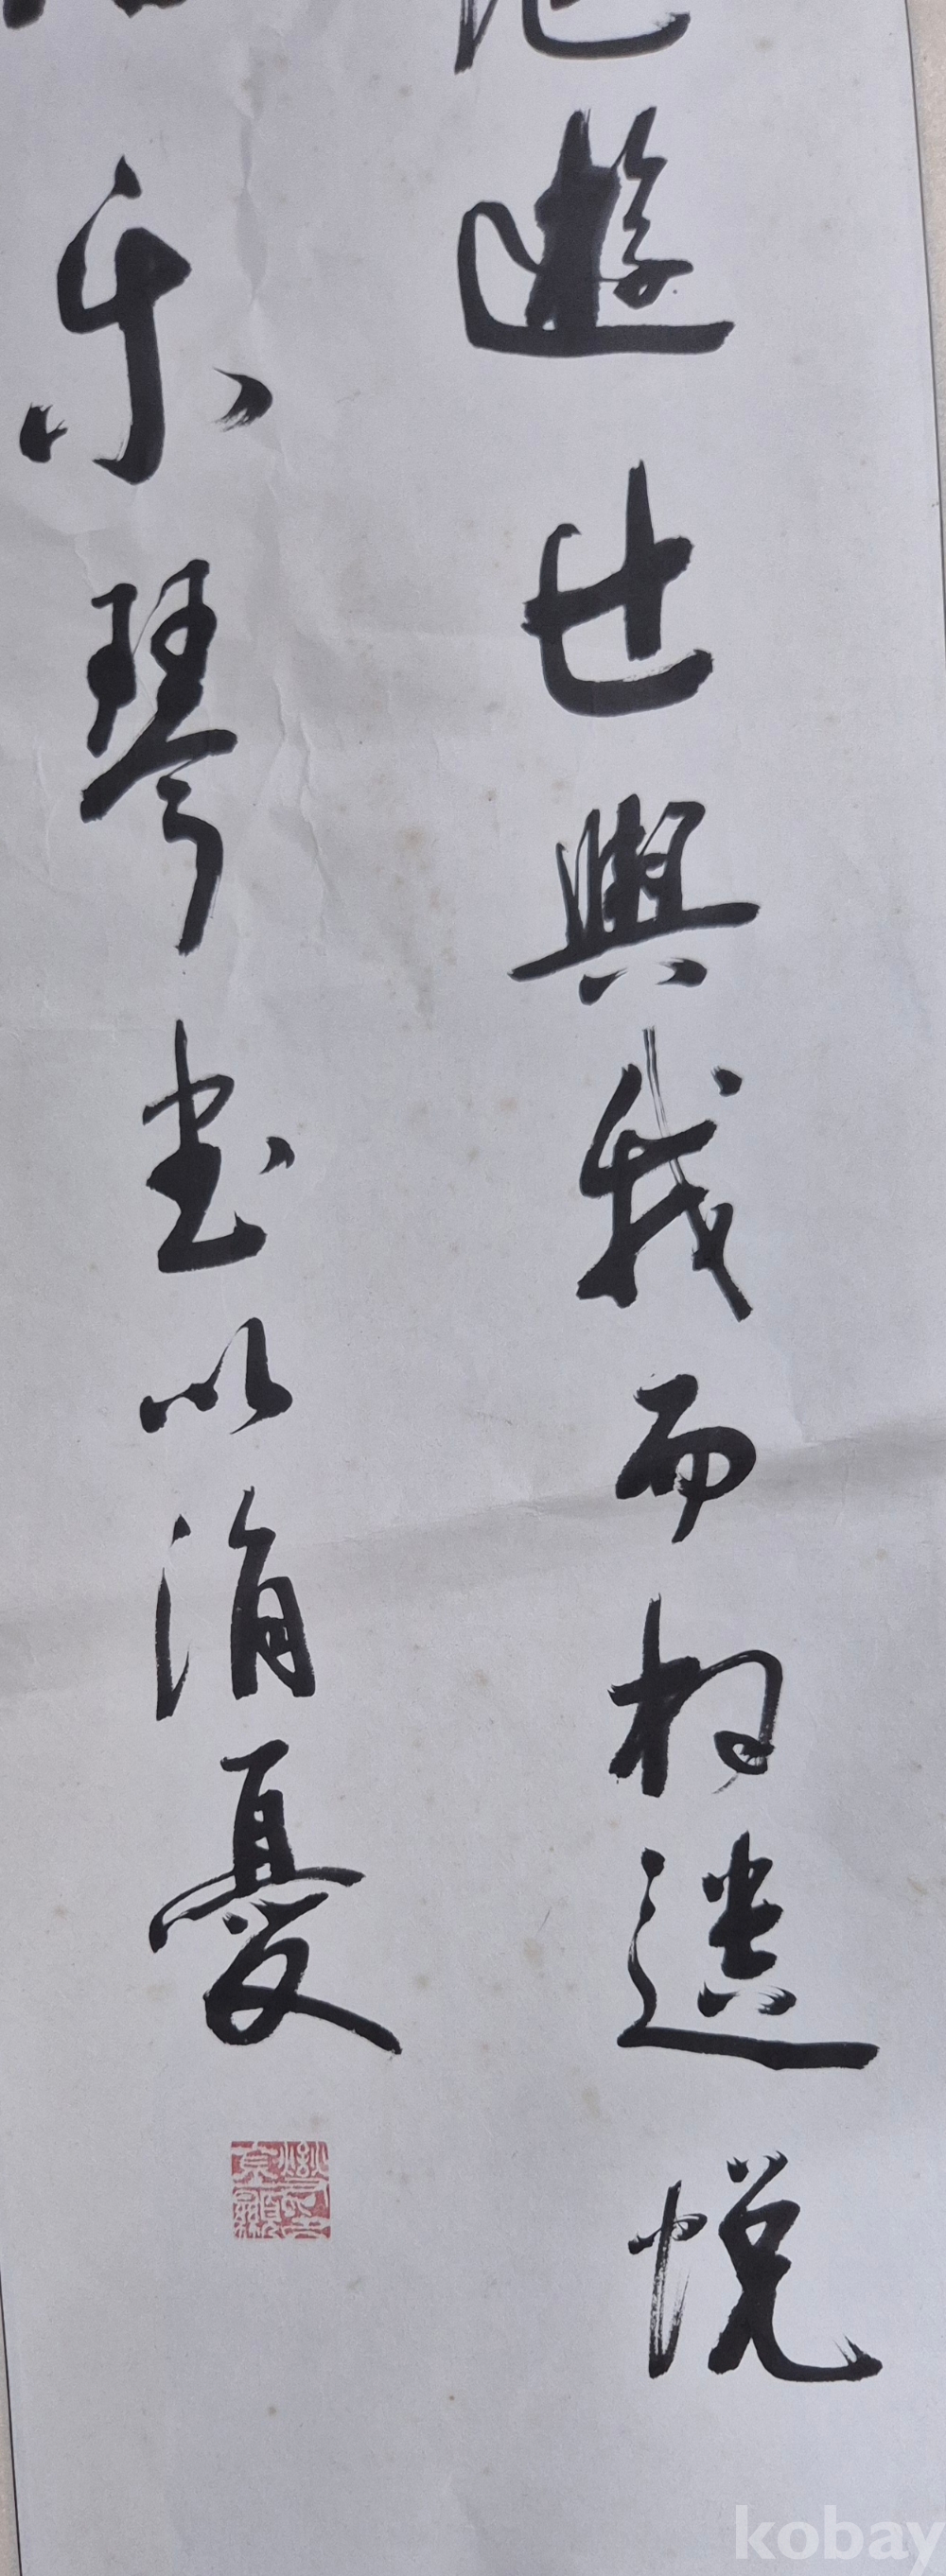 遊世與我而相遺悅
樂琴書以消憂
kobay